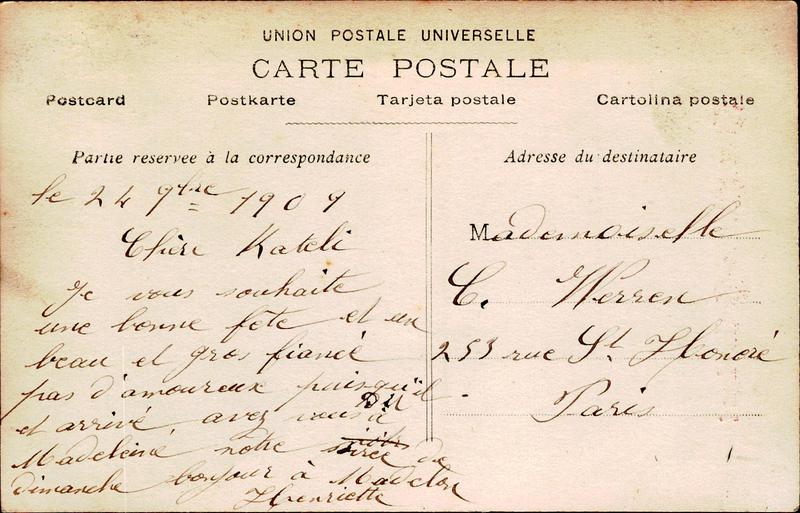 UNION POSTALE UNIVERSELLE
CARTE POSTALE
Postcard Postkarte Tarjeta postale Cartolina postale
Partie reservee à la correspondance
le 24 9bre 1909
Chère Kateli
Je vous souhaite
une bonne fête et un
beau et gros fiancé
pas d'amoureux puisqu'il
et arrivé, avez vous DU à
Madeleine notre soirée de
dimanche bonjour à Madelon
Henriette
Adresse du destinataire
Mademoiselle
C. Werren
253 rue St Honoré
Paris